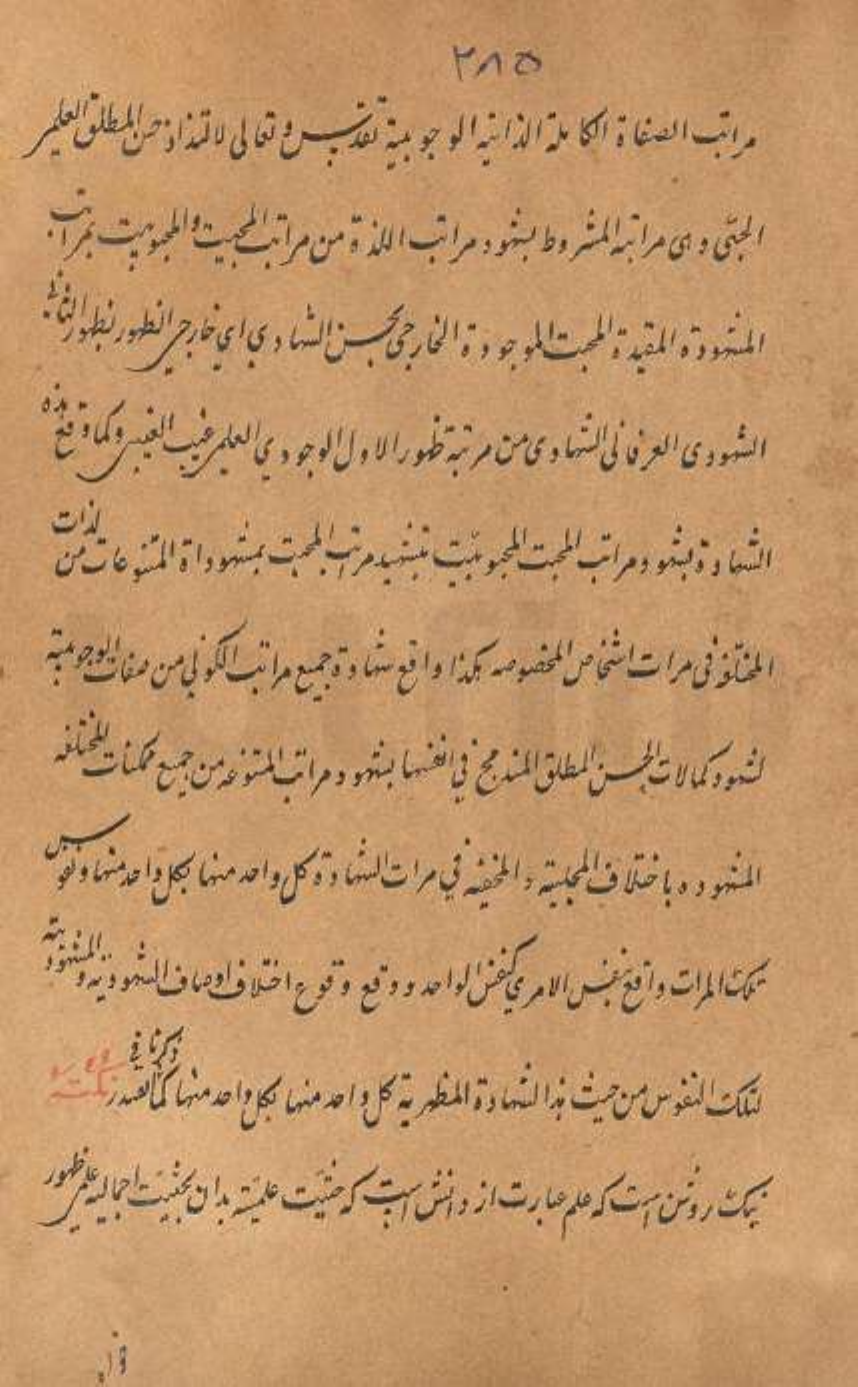 ٢٨٥
مراتب الصفاة الكاملة الذاتيه الوجوبية تقدس و تعالى لالتذاذ حسن المطلق العلمى
الحبّى و هى مراتبه المشروط بشهود مراتب اللذة من مراتب المحبيت والمحبوبيت بمراتب
المشهودة المقيدة المحبت الموجودة الخارجى بحسن الشهادي اي خارجى الظهور بظهور الثانى
الشهودى العرفانى الشهادى من مرتبة ظهور الاول الوجودي العلمى غيب الغيبى وكما وقع هذه
الشهادة بشهود مراتب المحبت المحبوبيّت مراتب المحبت بمشهوداة المتنوعات من لذات
المختلفة فى مرات اشخاص المخصوصه هكذا واقع شهادة جميع مراتب الكونى من صفات الوجوبية
لشهود كمالات الحسن المطلق المندمج في انفسها بشهود مراتب المتنوعه من جميع ممكنات المختلفه
المشهوده باختلاف المجلية والمخفيه في مرات الشهادة كل واحد منها بكل واحد منها ونفوس
تلك المرات واقع بنفس الامري كنفس الواحد و وقع وقوع اختلاف اوصاف الشهودية والمشهودية
لتلك النفوس من حيث هذا الشهادة المظهرية كل واحد منها بكل واحد منها كما ذكرنا في الصدر نكته
نيك روشن است كه علم عبارت از دانش است كه حيثيت علميّة بدان بحيثيت اجماليه علمى ظهور